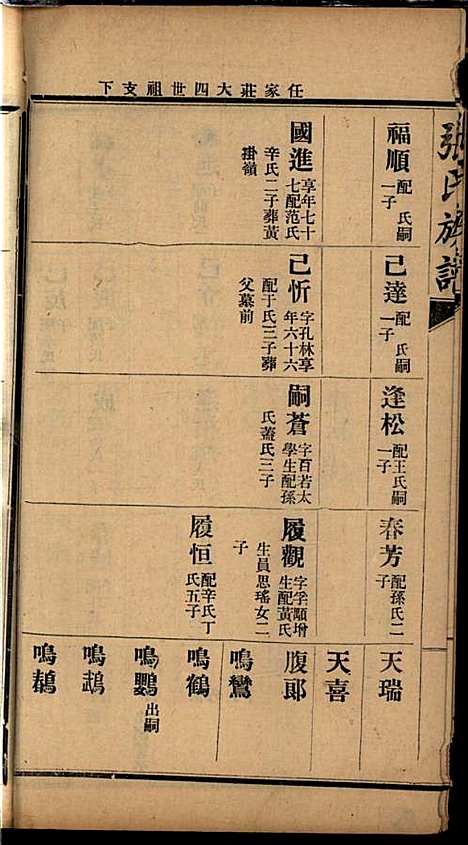 張氏族譜
任家莊大四世祖支下
福順 配 氏嗣
一子
國進 享年七十
七配范氏
辛氏二子葬黃
掛嶺
己達 配 氏嗣
一子
己忻 字孔林享
年六十六
配于氏三子葬
父墓前
逢松 配王氏嗣
一子
嗣蒼 字百若太
學生配孫
氏蓋氏三子
春芳 配孫氏二
子
履觀 字孚顒增
生配黃氏
生員思瑤女二
子
履恒 配辛氏丁
氏五子
天瑞
天喜
腹郎
鳴鸞
鳴鶴
鳴鸚 出嗣
鳴鵡
鳴鵲